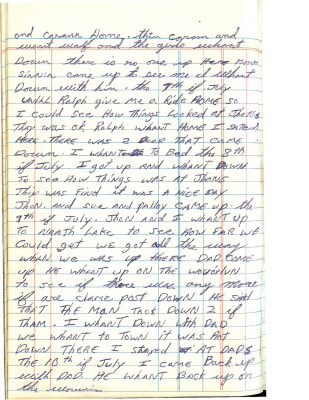 and corann Home. thin corann and
went well and the girls whant
Down there is no one up Here now
came up to see me I whant
Down with him. the 7th if July
until Ralph give me a Ride HOME so
I could See How Things Looked at Jhons
Thiy was ok Ralph WhANT HOME I stayed
Here. THERE WAS 2 that CAME
Down. I WhANT To Bed the 8th
if July I got up AND WhANT DOWN
To see How Things was AT JhONS
Thiy was Find it was A NICE DAY
JhON. and sue and pallay CAME up. the
9th if July. JhON AND I WhANT UP
TO NORATH Lake to see How FAR WE
Could get we got all the way
WhAN we was up there DAD COME
up HE WhANT up ON THE
to see if there was any more
if are clame post DOWN HE said
THAT THE MAN TACK DOWN 2 if
THAM. I WhANT DOWN with DAD
we WhANT to TOWN it was Hot
DOWN THERE I stayed AT DADS
THE 10th if July I came Back up
with DAD HE WhANT BACK up ON
the